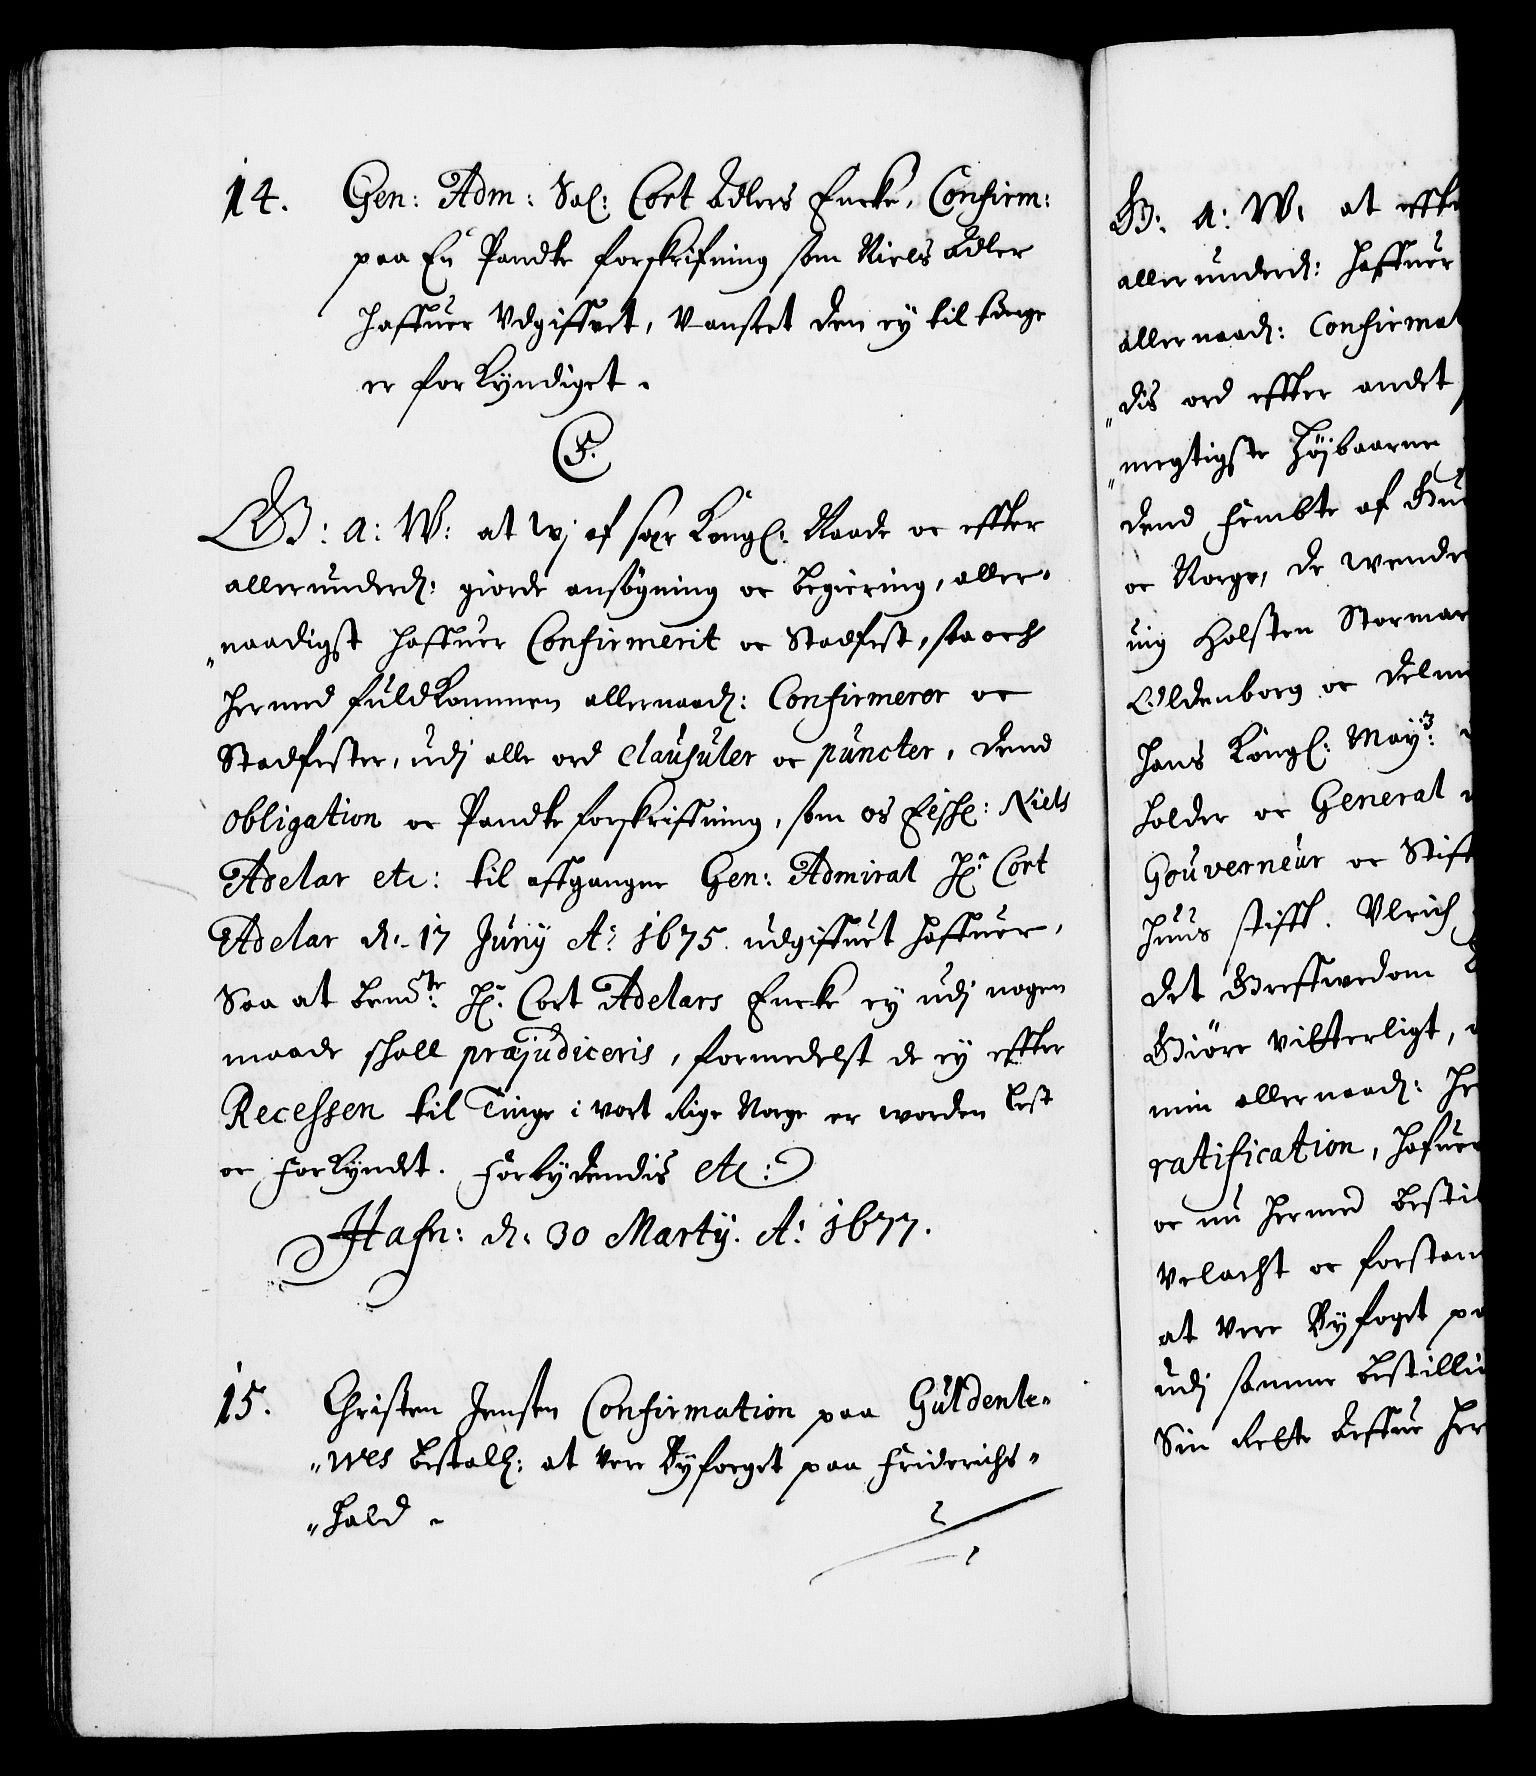 14. Gen: Adm: Sal: Cort Adlers Encke, Confirm:
paa En Pandte forskrifning som Niels Adler
haffuer Vdgiffuet, Vanseet den ey til tinge
er forkyndiget.
C 5.
G: A: W: at Wj af sær Kongl: Naade oc effter
allerunderd: giorde ansøgning oc begiering, aller-
"naadigst haffuer Confirmerit oc Stadfest, saa och
hermed fuldkommen allernaad: Confirmerer oc
Stadfester, udj alle ord clausuler oc puncter, dend
obligation oc Pandte forskriffning, som os Elskl: Niels
Adelar etc: til affgangne Gen: Admiral Hr: Cort
Adelar d. 17 Juny Ao: 1675 udgiffuet haffuer,
Saa at bemte: Hr: Cort Adelars Encke ey udj nogen
maade skall præjudiceris, formedelst de ey effter
Recessen til Tinge i vort Rige Norge er worden lest
oc forkyndt. Forbydendis etc:
Hafn: d: 30 Martij. Ao: 1677.
15. Christen Jensen Confirmation paa Güldenle-
"wes bestall: at vere Byfoeget paa Friderichs-
"hald.
G: A: W: at effte
allerunderd: haffuer
allernaad: Confirmat
"dis ord effter andet
"megtigste Højbaarne
dend femte af Gu
oc Norge, de Wende
uig Holsten Stormar
Oldenborg oc Delm
Hans Kongl: Mayts:
holder oc General
Gouverneur oc Stift
huus stifft. Ulrich
det Greffwedom
Giøre vitterligt,
min allernaad: He
ratification, hafuer
oc nu hermed bestil
Velacht oc forstan
at vere Byfoget pa
udj samme bestilli
Sin Rette Leffue Her